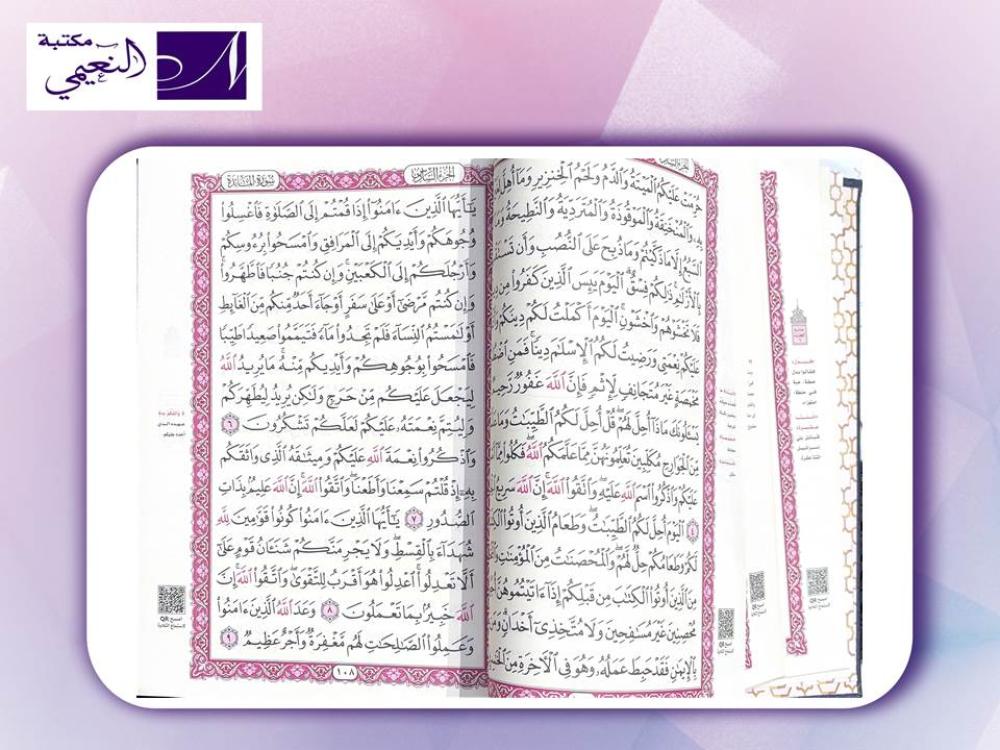 مكتبة
النعيمي
حُرِّمَتْ عَلَيْكُمُ ٱلْمَيْتَةُ وَٱلدَّمُ وَلَحْمُ ٱلْخِنزِيرِ وَمَآ أُهِلَّ
بِهِۦ وَٱلْمُنْخَنِقَةُ وَٱلْمَوْقُوذَةُ وَٱلْمُتَرَدِّيَةُ وَٱلنَّطِيحَةُ
ٱلسَّبُعُ إِلَّا مَا ذَكَّيْتُمْ وَمَا ذُبِحَ عَلَى ٱلنُّصُبِ وَأَن
بِٱلْأَزْلَٰمِ ذَٰلِكُمْ فِسْقٌ ٱلْيَوْمَ يَئِسَ ٱلَّذِينَ كَفَرُوا۟ مِن
فَلَا تَخْشَوْهُمْ وَٱخْشَوْنِ ٱلْيَوْمَ أَكْمَلْتُ لَكُمْ دِينَكُمْ
عَلَيْكُمْ نِعْمَتِى وَرَضِيتُ لَكُمُ ٱلْإِسْلَٰمَ دِينًا فَمَنِ
مَخْمَصَةٍ غَيْرَ مُتَجَانِفٍ لِّإِثْمٍ فَإِنَّ ٱللَّهَ غَفُورٌ رَّحِيمٌ
يَسْـَٔلُونَكَ مَاذَآ أُحِلَّ لَهُمْ قُلْ أُحِلَّ لَكُمُ ٱلطَّيِّبَٰتُ
مِّنَ ٱلْجَوَارِحِ مُكَلِّبِينَ تُعَلِّمُونَهُنَّ مِمَّا عَلَّمَكُمُ ٱللَّهُ فَكُلُوا۟ مِمَّآ
عَلَيْكُمْ وَٱذْكُرُوا۟ ٱسْمَ ٱللَّهِ عَلَيْهِ وَٱتَّقُوا۟ ٱللَّهَ إِنَّ ٱللَّهَ سَرِيعُ
٤ ٱلْيَوْمَ أُحِلَّ لَكُمُ ٱلطَّيِّبَٰتُ وَطَعَامُ ٱلَّذِينَ أُوتُوا۟
لَّكُمْ وَطَعَامُكُمْ حِلٌّ لَّهُمْ وَٱلْمُحْصَنَٰتُ مِنَ ٱلْمُؤْمِنَٰتِ
مِنَ ٱلَّذِينَ أُوتُوا۟ ٱلْكِتَٰبَ مِن قَبْلِكُمْ إِذَآ ءَاتَيْتُمُوهُنَّ
مُحْصِنِينَ غَيْرَ مُسَٰفِحِينَ وَلَا مُتَّخِذِىٓ أَخْدَانٍ
بِٱلْإِيمَٰنِ فَقَدْ حَبِطَ عَمَلُهُۥ وَهُوَ فِى ٱلْـَٔاخِرَةِ مِنَ
سورة المائدة
الجزء السادس
يَٰٓأَيُّهَا ٱلَّذِينَ ءَامَنُوٓا۟ إِذَا قُمْتُمْ إِلَى ٱلصَّلَوٰةِ فَٱغْسِلُوا۟
وُجُوهَكُمْ وَأَيْدِيَكُمْ إِلَى ٱلْمَرَافِقِ وَٱمْسَحُوا۟ بِرُءُوسِكُمْ
وَأَرْجُلَكُمْ إِلَى ٱلْكَعْبَيْنِ وَإِن كُنتُمْ جُنُبًا فَٱطَّهَّرُوا۟
وَإِن كُنتُم مَّرْضَىٰٓ أَوْ عَلَىٰ سَفَرٍ أَوْ جَآءَ أَحَدٌ مِّنكُم مِّنَ ٱلْغَآئِطِ
أَوْ لَٰمَسْتُمُ ٱلنِّسَآءَ فَلَمْ تَجِدُوا۟ مَآءً فَتَيَمَّمُوا۟ صَعِيدًا طَيِّبًا
فَٱمْسَحُوا۟ بِوُجُوهِكُمْ وَأَيْدِيكُم مِّنْهُ مَا يُرِيدُ ٱللَّهُ
لِيَجْعَلَ عَلَيْكُم مِّنْ حَرَجٍ وَلَٰكِن يُرِيدُ لِيُطَهِّرَكُمْ
وَلِيُتِمَّ نِعْمَتَهُۥ عَلَيْكُمْ لَعَلَّكُمْ تَشْكُرُونَ ٦
وَٱذْكُرُوا۟ نِعْمَةَ ٱللَّهِ عَلَيْكُمْ وَمِيثَٰقَهُ ٱلَّذِى وَاثَقَكُم
بِهِۦٓ إِذْ قُلْتُمْ سَمِعْنَا وَأَطَعْنَا وَٱتَّقُوا۟ ٱللَّهَ إِنَّ ٱللَّهَ عَلِيمٌۢ بِذَاتِ
ٱلصُّدُورِ ٧ يَٰٓأَيُّهَا ٱلَّذِينَ ءَامَنُوا۟ كُونُوا۟ قَوَّٰمِينَ لِلَّهِ
شُهَدَآءَ بِٱلْقِسْطِ وَلَا يَجْرِمَنَّكُمْ شَنَـَٔانُ قَوْمٍ عَلَىٰٓ
أَلَّا تَعْدِلُوا۟ ٱعْدِلُوا۟ هُوَ أَقْرَبُ لِلتَّقْوَىٰ وَٱتَّقُوا۟ ٱللَّهَ إِنَّ
ٱللَّهَ خَبِيرٌۢ بِمَا تَعْمَلُونَ ٨ وَعَدَ ٱللَّهُ ٱلَّذِينَ ءَامَنُوا۟
وَعَمِلُوا۟ ٱلصَّٰلِحَٰتِ لَهُم مَّغْفِرَةٌ وَأَجْرٌ عَظِيمٌ ٩
١٠٨